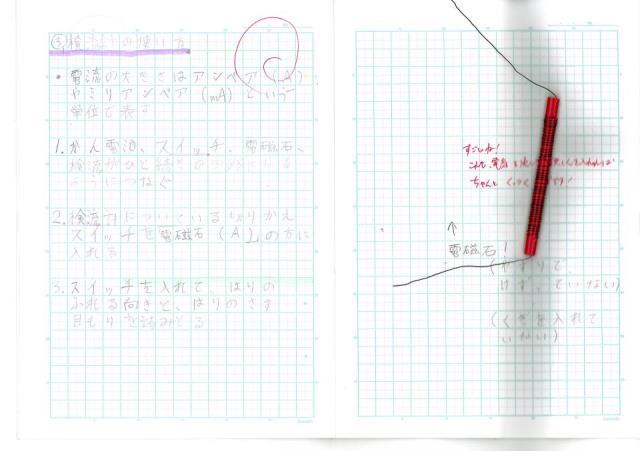 ③検流計の使い方
・電流の大きさはアンペア(A)
やミリアンペア(mA)という
単位で表す
1.かん電池、スイッチ、電磁石、
検流計がひと続きの
ようにつなぐ
2.検流計についている切りかえ
スイッチを電磁石(A)の方に
入れる
3.スイッチを入れて、はりの
ふれる向きと、はりのさす
目もりを読みとる
すごいね!
これで、電流を
ちゃんと くっつく です!
↑
電磁石!
(やすりで
けずっていない)
(くぎを入れて
いない)